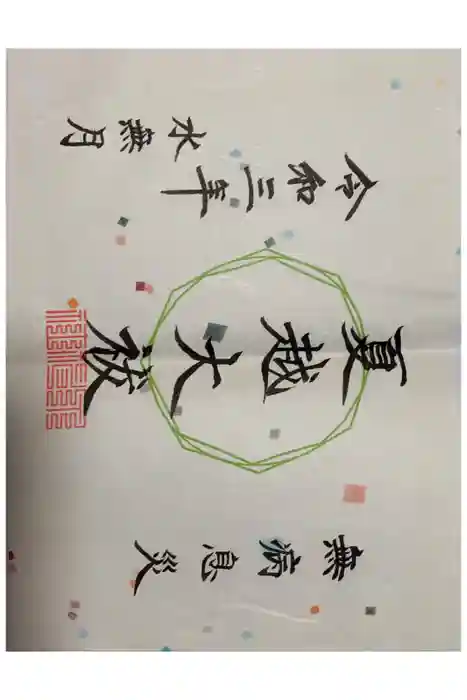 無病息災
夏越大祓
令和三年
水無月